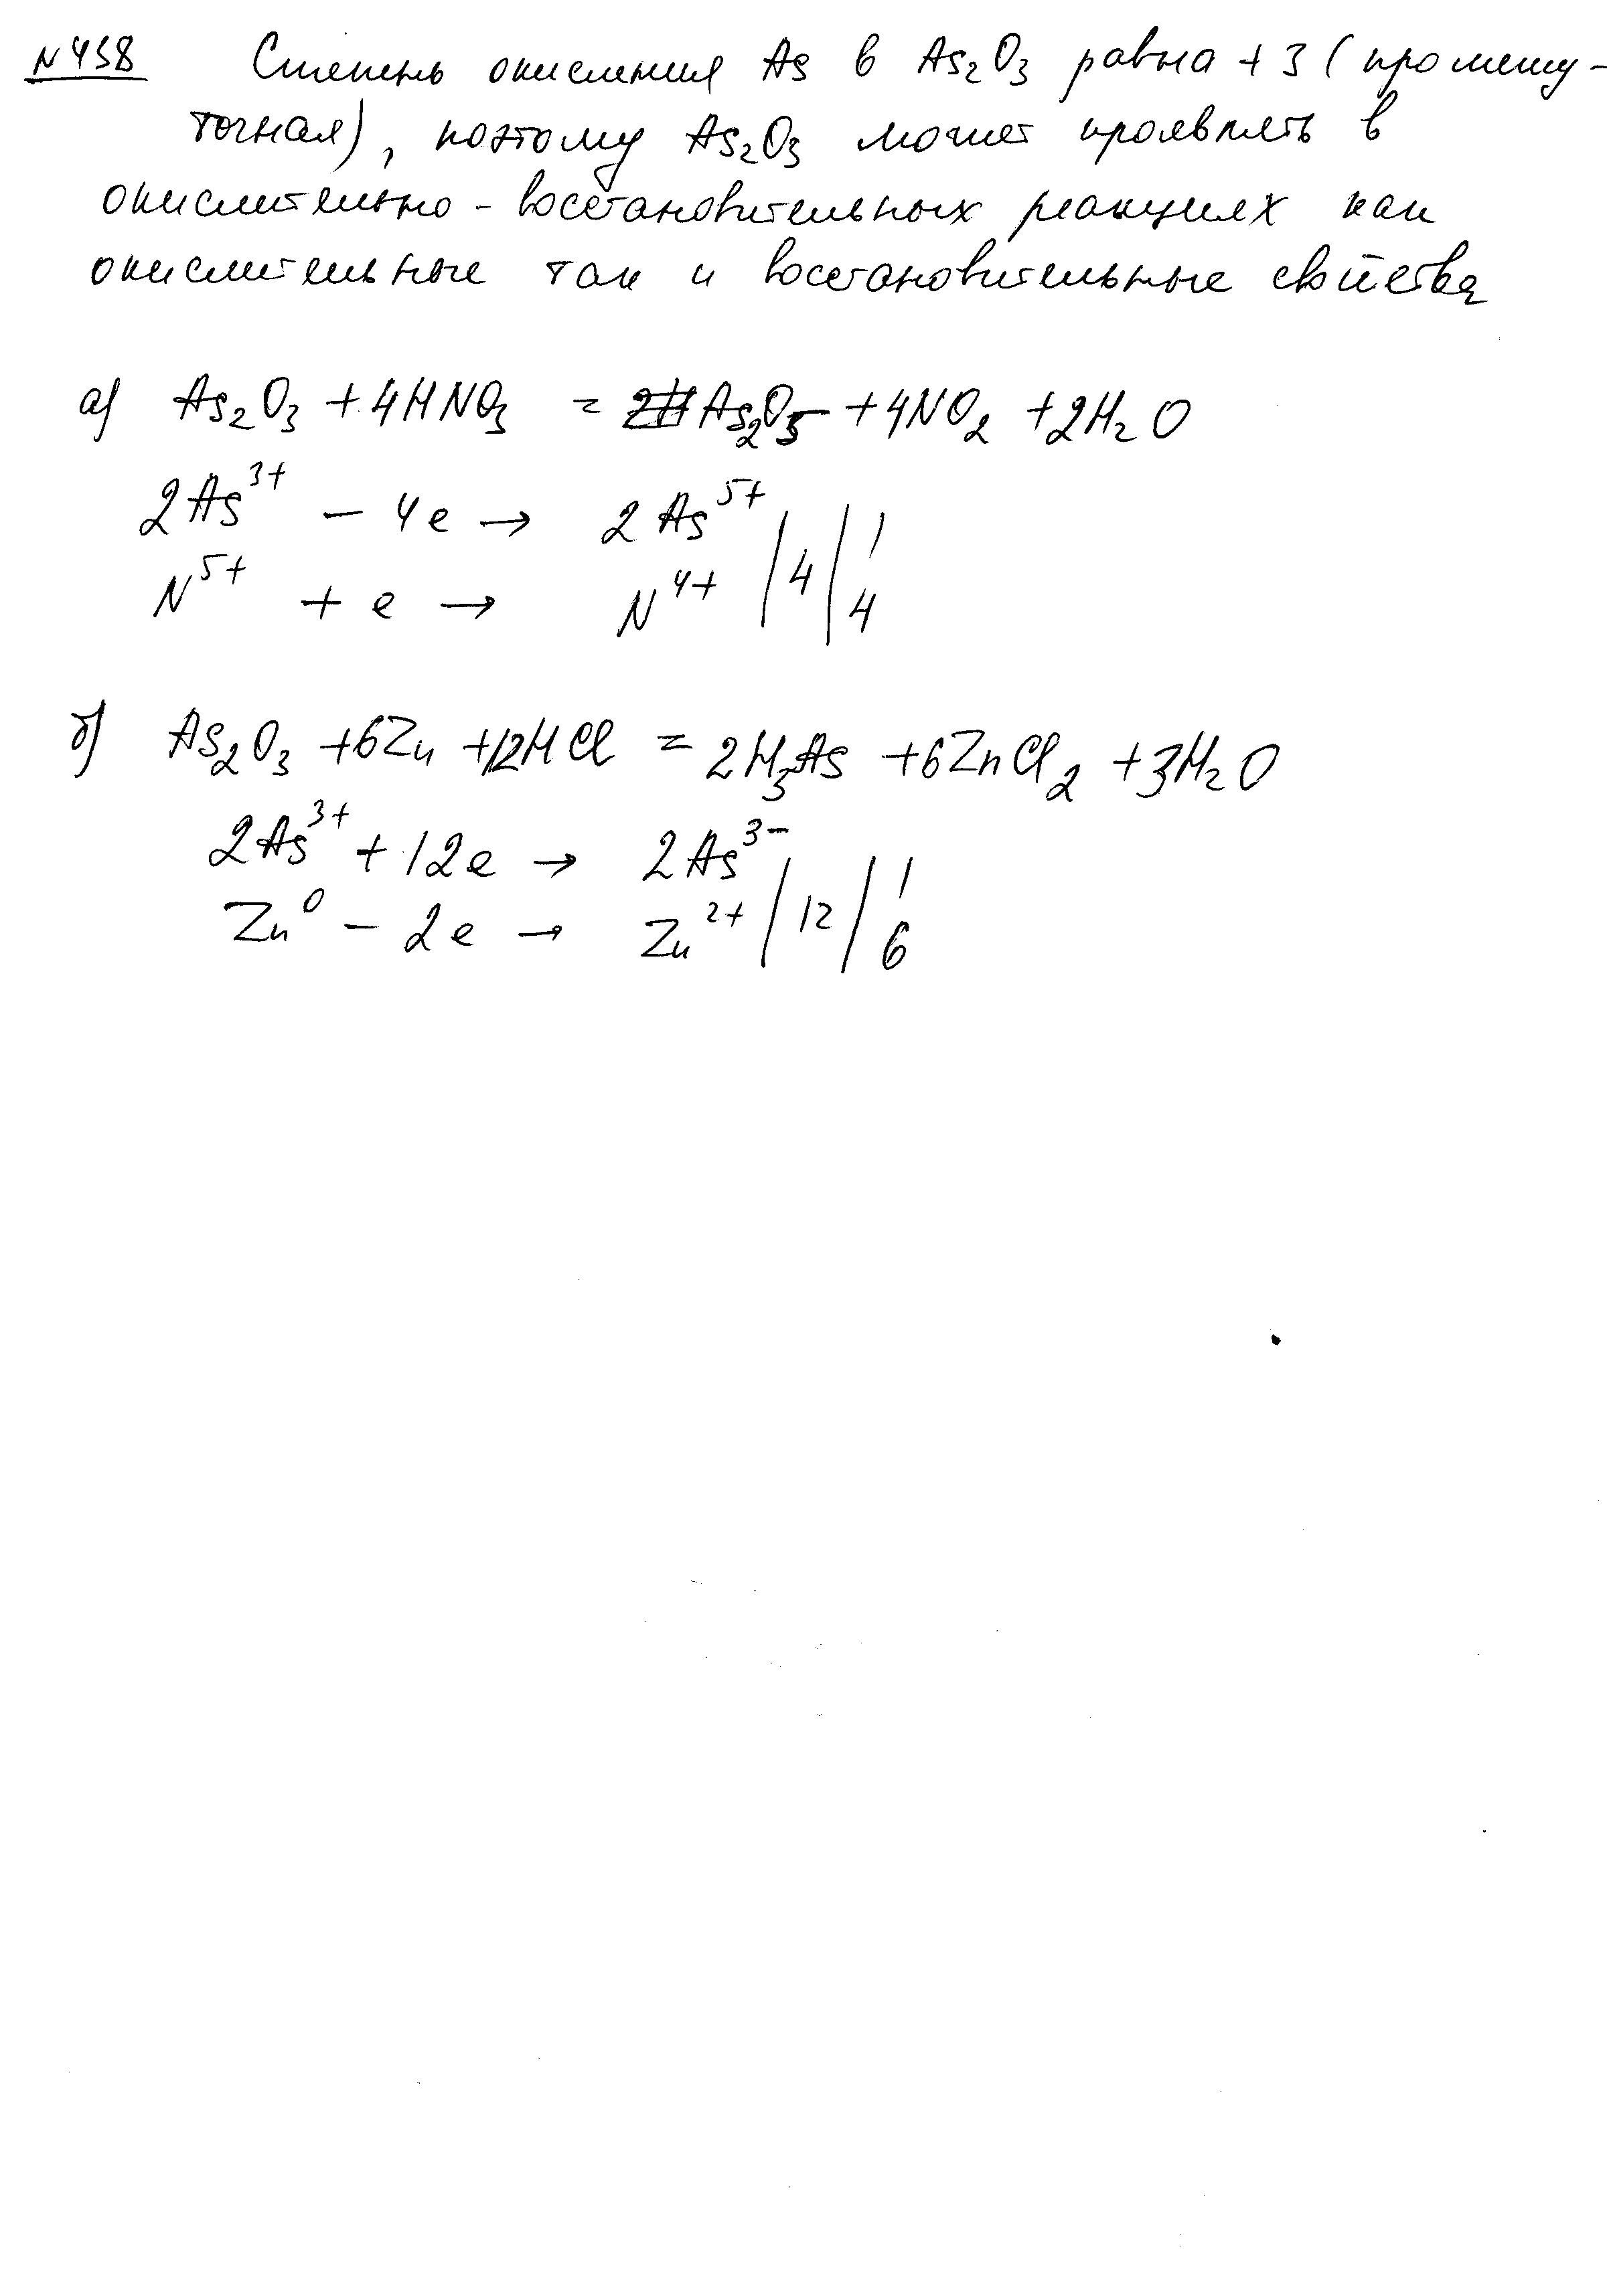 №438 Степень окисления As в As₂O₃ равна +3 (промежу-
точная), поэтому As₂O₃ может проявлять в
окислительно-восстановительных реакциях как
окислительные так и восстановительные свойства
а) As₂O₃ + 4HNO₃ = As₂O₅ + 4NO₂ + 2H₂O
2As³⁺ – 4e → 2As⁵⁺ | 4 | 1
N⁵⁺ + e → N⁴⁺ | 4 | 4
б) As₂O₃ + 6Zn + 12HCl = 2H₃As + 6ZnCl₂ + 3H₂O
2As³⁺ + 12e → 2As³⁻ | 12 | 1
Zn⁰ – 2e → Zn²⁺ | 12 | 6